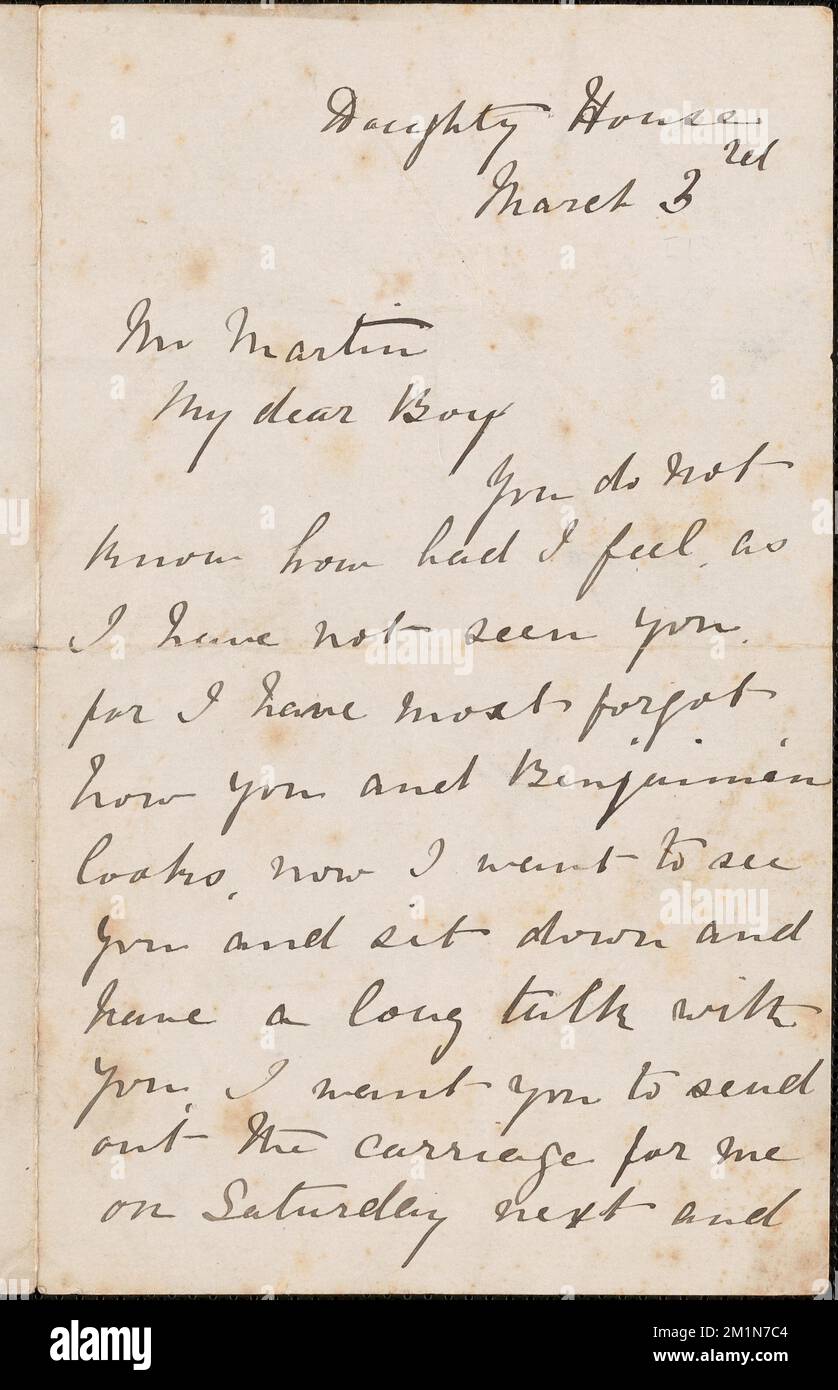 Doughty House
March 3rd
Mr Martin
My dear Boy
You do not
know how bad I feel, as
I have not seen you.
for I have most forgot
how you and Benjaimin
looks, now I want to see
you and sit down and
have a long talk with
you, I want you to send
out the carriage for me
on Saturday next and
alamy
Image ID: 2M1N7C4
www.alamy.com